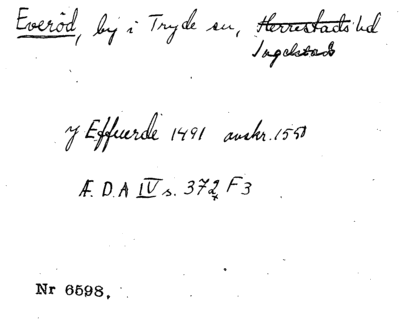 Everöd, by i Tryde sn, Herrestads hd
Ingelstads
y Effuerde 1491 avskr. 1550
Æ. D. A IV s. 372 F 3
Nr 6598.